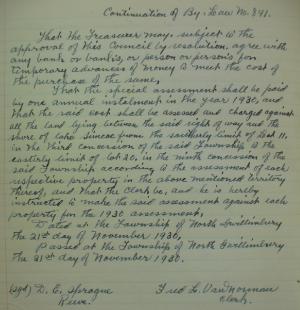 Continuation of By-Law No. 891.
That the Treasurer may, subject to the
approval of this Council by resolution, agree with
any bank or banks, or person or persons for
temporary advances of money to meet the cost of
the purchase of the same.
That the special assessment shall be paid
by one annual instalment in the year 1930, and
that the said cost shall be assessed and charged against
all the land lying between the said right of way and the
shore of Lake Simcoe from the southerly limit of Lot 11,
in the third concession of the said Township to the
easterly limit of lot 20, in the ninth concession of the
said Township according to the assessment of each
respective property in the above mentioned territory
thereof, and that the Clerk be, and he is hereby
instructed to make the said assessment against each
property for the 1930 assessment.
Dated at the Township of North Gwillimbury
the 21st day of November 1930.
Passed at the Township of North Gwillimbury
the 21st day of November 1930.
(sgd) D. E. Sprague Fred L. VanNorman
Reeve. Clerk.